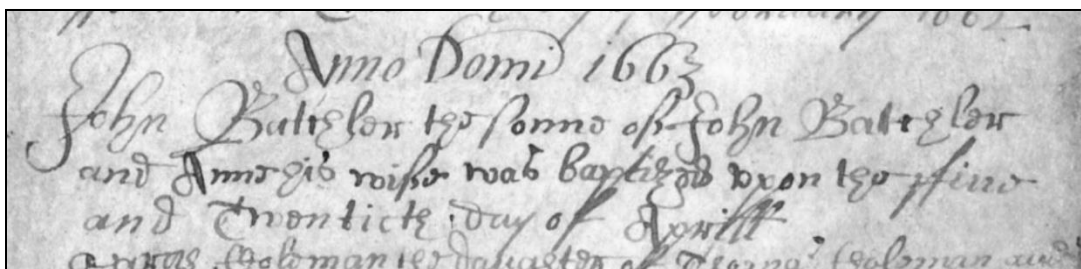 February 1662
Anno Domi 1663
John Batchler the sonne of John Batchler
and Anne his wife was baptized vpon the ffiue
and Twentieth day of Aprill
the daughter of Thomas Tholeman and